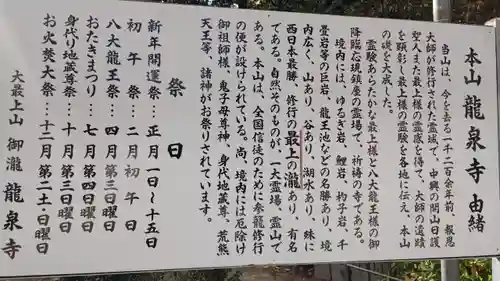 本山 龍泉寺 由緒
当山は、今を去る一千二百余年前、報恩
大師が修行された霊域で、中興の開山日護
聖人また最上様の霊感を得て、大師の遺蹟
を顕彰し最上様の霊験を各地に伝え、本山
の礎を大成した。
霊験あらたかな最上様と八大龍王様の御
降臨応現鎮座の霊場で、祈祷の寺である。
境内には、ゆるぎ岩、鯉岩、杓子岩、千
畳岩等の巨岩、龍王池などの名勝あり、境
内広く、山あり、谷あり、湖水あり、殊に
西日本最勝、修行の最上の瀧あり、有名
である。自然そのものが、一大霊場、霊山で
ある。本山は、全国信徒のために参籠修行
の便が設けられている。尚、境内には厄除け
御祖師様、鬼子母尊神、身代地蔵尊、荒熊
天王等、諸神がお祭りされています。
祭日
新年開運祭…正月一日〜十五日
初午祭…二月初午日
八大龍王祭…四月第三日曜日
おたきまつり…七月第四日曜日
身代り地蔵尊祭…十月第三日曜日
お火焚大祭…十二月第二土・日曜日
大最上山 御瀧 龍泉寺